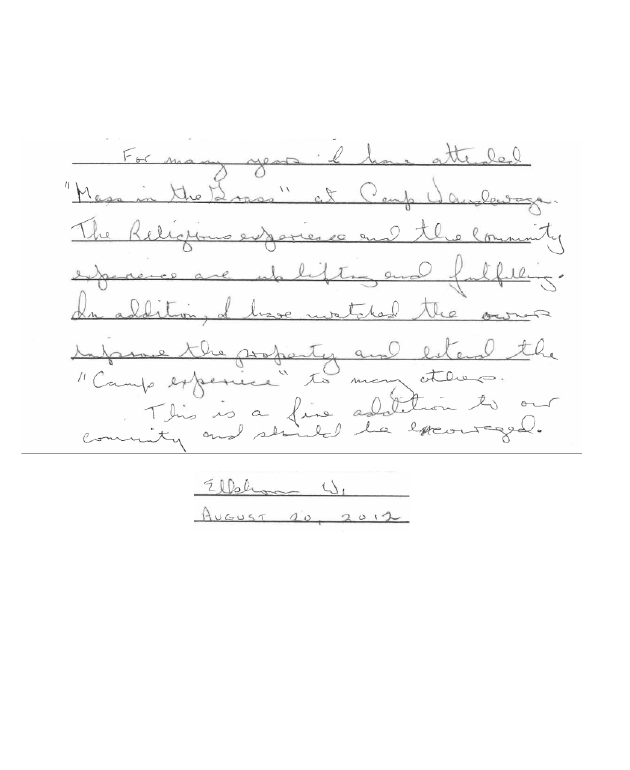 For many years I have attended
"Mass in the Grass" at Camp Wandawega.
The Religious experience and the Community
experience are uplifting and fulfilling.
In addition, I have watched the owners
improve the property and extend the
"Camp experience" to many others.
This is a fine addition to our
community and should be encouraged.
Elkhorn W.
AUGUST 20, 2012